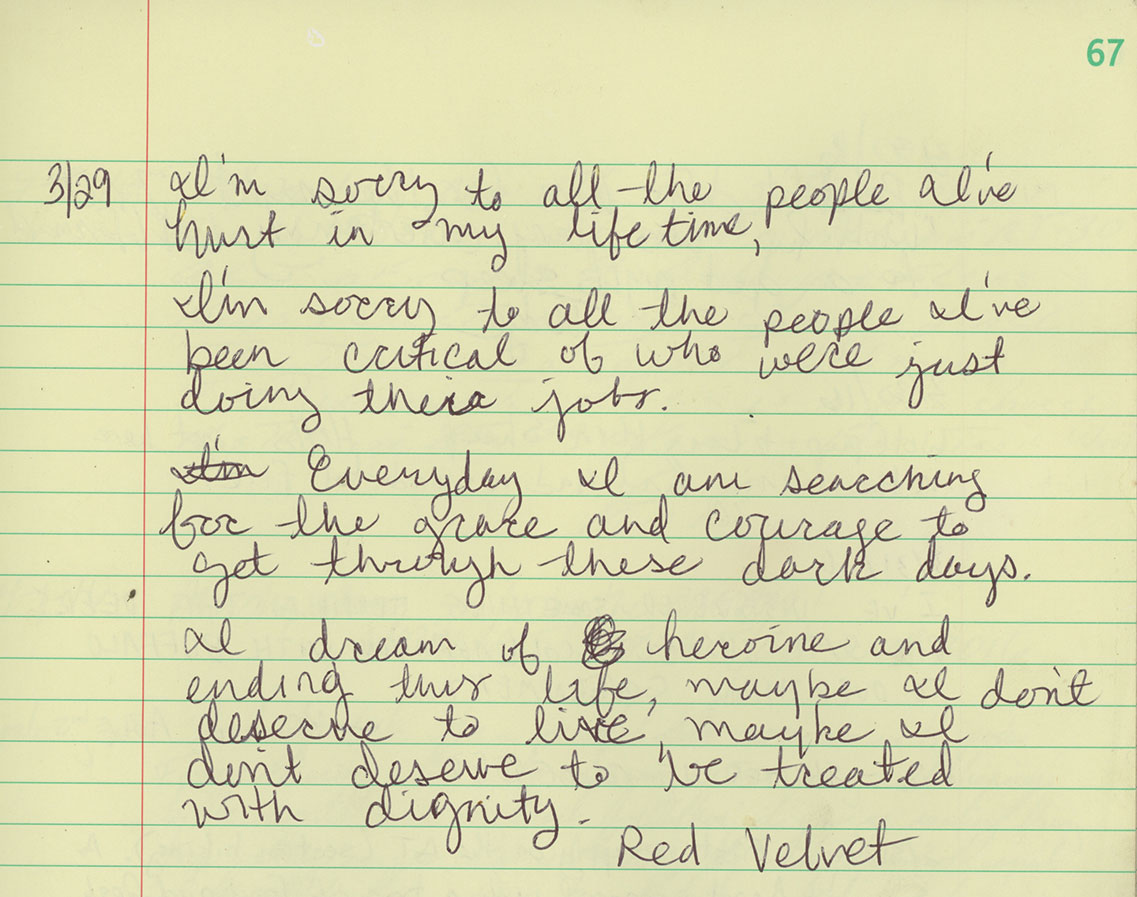 67
3/29 I'm sorry to all the people I've
hurt in my lifetime,
I'm sorry to all the people I've
been critical of who were just
doing their jobs.
I'm Everyday I am searching
for the grace and courage to
get through these dark days.
I dream of heroine and
ending this life, maybe I don't
deserve to live, maybe I
don't deserve to be treated
with dignity.
Red Velvet